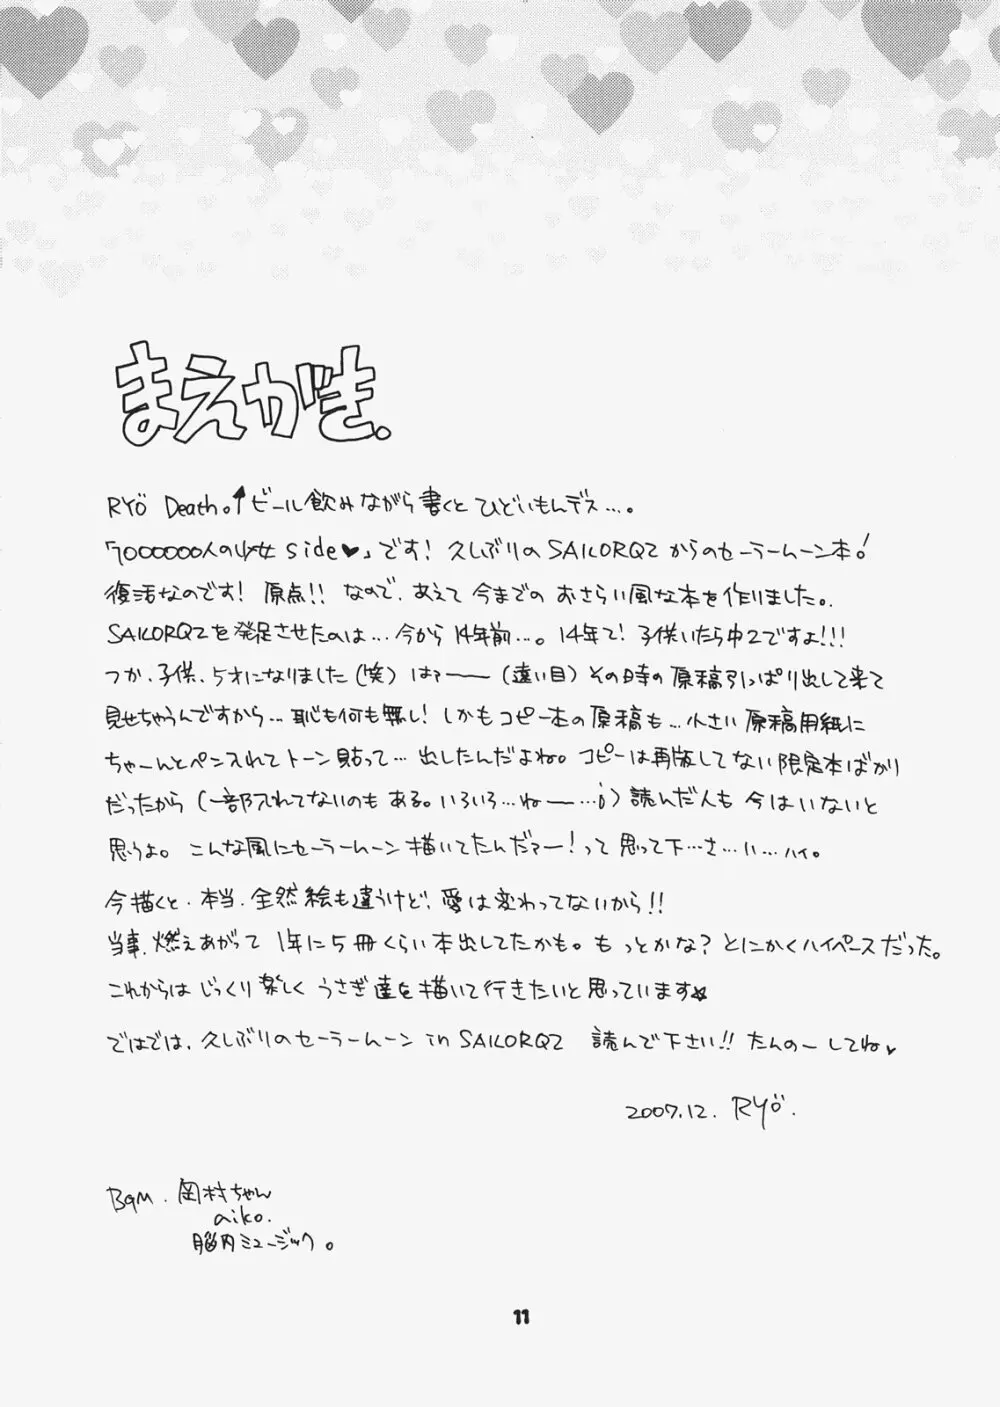 まえがき.
RYÖ Death。↑ビール飲みながら書くとひどいもんデス…。
「7000000人の少女 side♥」です! 久しぶりの SAILORQ2 からのセーラームーン本!
復活なのです! 原点!! なので、あえて 今までの おさらい風な本を作りました。
SAILORQ2を発足させたのは…今から14年前…。14年て! 子供いたら中2ですよ!!!
つか、子供、5才になりました(笑) はァーーー(遠い目) その時の原稿引っぱり出して来て
見せちゃうんですから…恥も何も無し! しかもコピー本の原稿も…小さい原稿用紙に
ちゃーんとペン入れてトーン貼って…出したんだよね。コピーは再版してない限定本ばかり
だったから(一部入れてないのもある。いろいろ…ねー…i) 読んだ人も今はいないと
思うよ。こんな風にセーラームーン描いてたんだァー!って思って下…さ…い…ハイ。
今描くと、本当、全然絵も違うけど、愛は変わってないから!!
当事、燃えあがって 1年に5冊くらい本出してたかも。もっとかな? とにかくハイペースだった。
これからはじっくり楽しく うさぎ達を描いて行きたいと思っています☆
ではでは、久しぶりのセーラームーン in SAILORQ2 読んで下さい!! たんのーしてね♥
2007.12. RYÖ.
BGM. 岡村ちゃん
aiko.
脳内ミュージック。
11